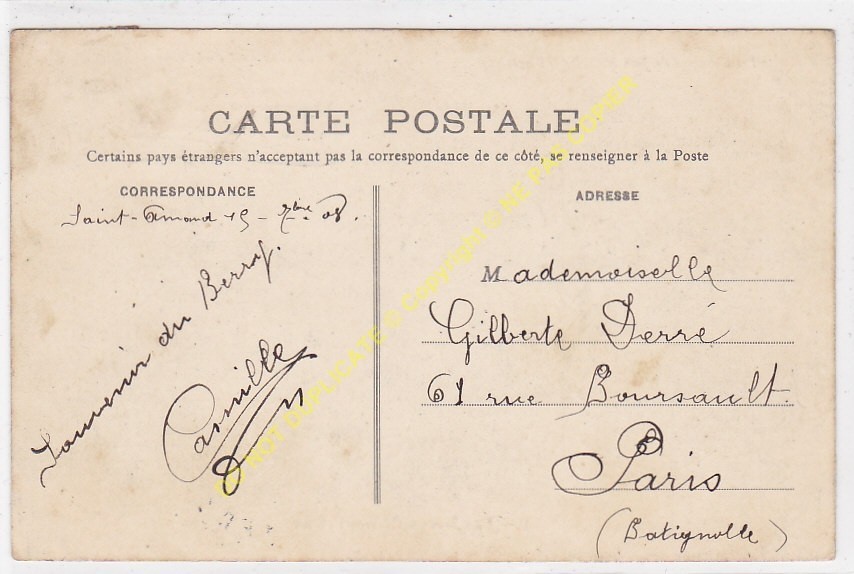 CARTE POSTALE
Certains pays étrangers n'acceptant pas la correspondance de ce côté, se renseigner à la Poste
CORRESPONDANCE
Saint-Amand 15 - 7bre 08.
Souvenir du Berry.
Camille
ADRESSE
Mademoiselle
Gilberte Derré
61 rue Boursault.
Paris
(Batignolle)
DO NOT DUPLICATE © Copyright © NE PAS COPIER